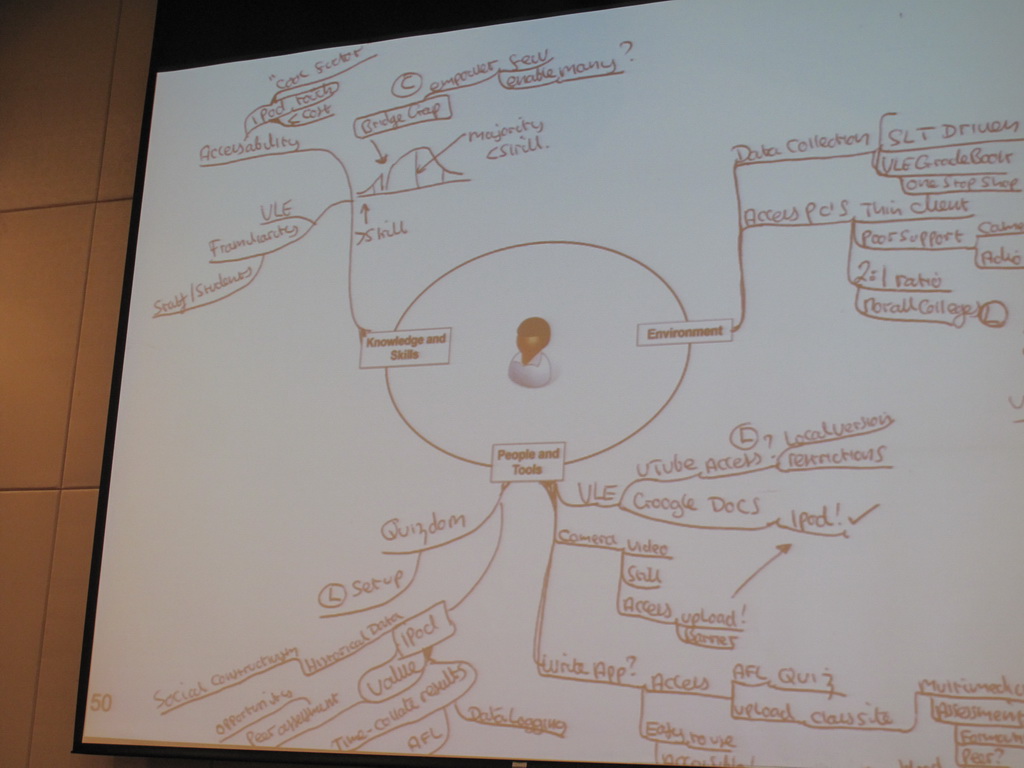 "Core Sector
IPod touch
< Cost
Accessability
C empower few
enable many?
Bridge Gap
majority
< skill.
> skill
VLE
Framuliarity
Staff/Students
Knowledge and
Skills
Environment
Data Collection
SLT Driven
VLE GradeBook
One Stop Shop
Access PC'S
Thin Client
Poor Support
2:1 ratio
Not all Colleges L
People and
Tools
VLE
UTube Access?
Local versions
restrictions
Google Docs
IPod! ✓
Camera
Video
Still
Access
upload!
Barrier
Write App?
Access
AFL Quiz
upload
class site
Easy to use
Accessible!
Quizdom
L Set up
IPod
Historical Data
Social Constructivity
Value
opportunities
Peer assessment
Time-collate results
AFL
Data Logging
50